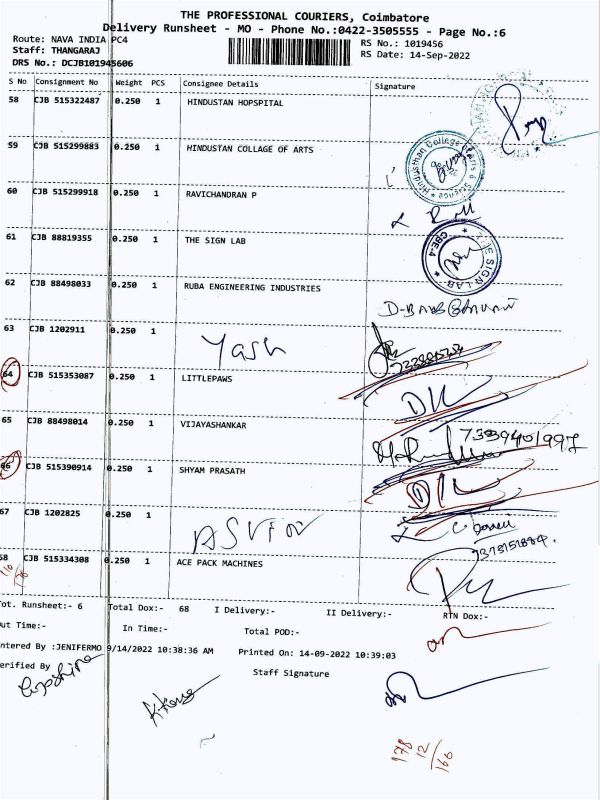 THE PROFESSIONAL COURIERS, Coimbatore
Delivery Runsheet - MO - Phone No.:0422-3505555 - Page No.:6
Route: NAVA INDIA PC4
Staff: THANGARAJ
DRS No.: DCJB101945606
RS No.: 1019456
RS Date: 14-Sep-2022
S No Consignment No Weight PCS Consignee Details Signature
58 CJB 515322487 0.250 1 HINDUSTAN HOPSPITAL
59 CJB 515299883 0.250 1 HINDUSTAN COLLAGE OF ARTS
60 CJB 515299918 0.250 1 RAVICHANDRAN P
61 CJB 88819355 0.250 1 THE SIGN LAB
THE SIGN LAB CBE-4
62 CJB 88498033 0.250 1 RUBA ENGINEERING INDUSTRIES
63 CJB 1202911 0.250 1 Yash
64 CJB 515353087 0.250 1 LITTLEPAWS
65 CJB 88498014 0.250 1 VIJAYASHANKAR
7339401997
66 CJB 515390914 0.250 1 SHYAM PRASATH
67 CJB 1202825 0.250 1 ASVIN
7373151884.
68 CJB 515334308 0.250 1 ACE PACK MACHINES
Tot. Runsheet:- 6 Total Dox:- 68 I Delivery:- II Delivery:- RTN Dox:-
Out Time:- In Time:- Total POD:-
Entered By :JENIFERMO 9/14/2022 10:38:36 AM Printed On: 14-09-2022 10:39:03
Verified By Staff Signature
178
12
166